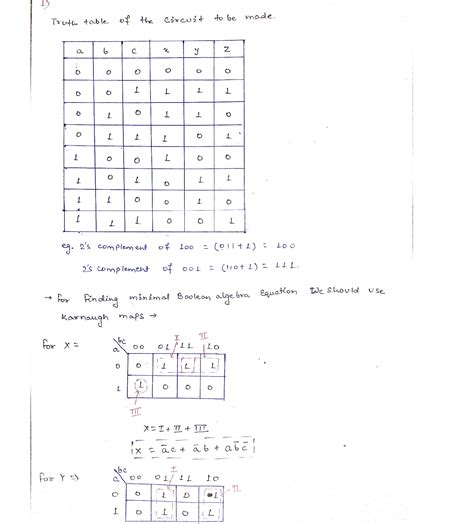 1)
Truth table of the circuit to be made.
a b c x y z
0 0 0 0 0 0
0 0 1 1 1 1
0 1 0 1 1 0
0 1 1 1 0 1
1 0 0 1 0 0
1 0 1 0 1 1
1 1 0 0 1 0
1 1 1 0 0 1
eg. 2's complement of 100 = (011+1) = 100
2's complement of 001 = (110+1) = 111.
→ for finding minimal Boolean algebra equation we should use
Karnaugh maps →
I II
for X = a bc 00 01 11 10
0 0 1 1 1
1 1 0 0 0
III
X = I + II + III
x = a̅c + a̅b + ab̅c̅
I
for Y => a bc 00 01 11 10
0 0 1 0 1 II
1 0 1 0 1